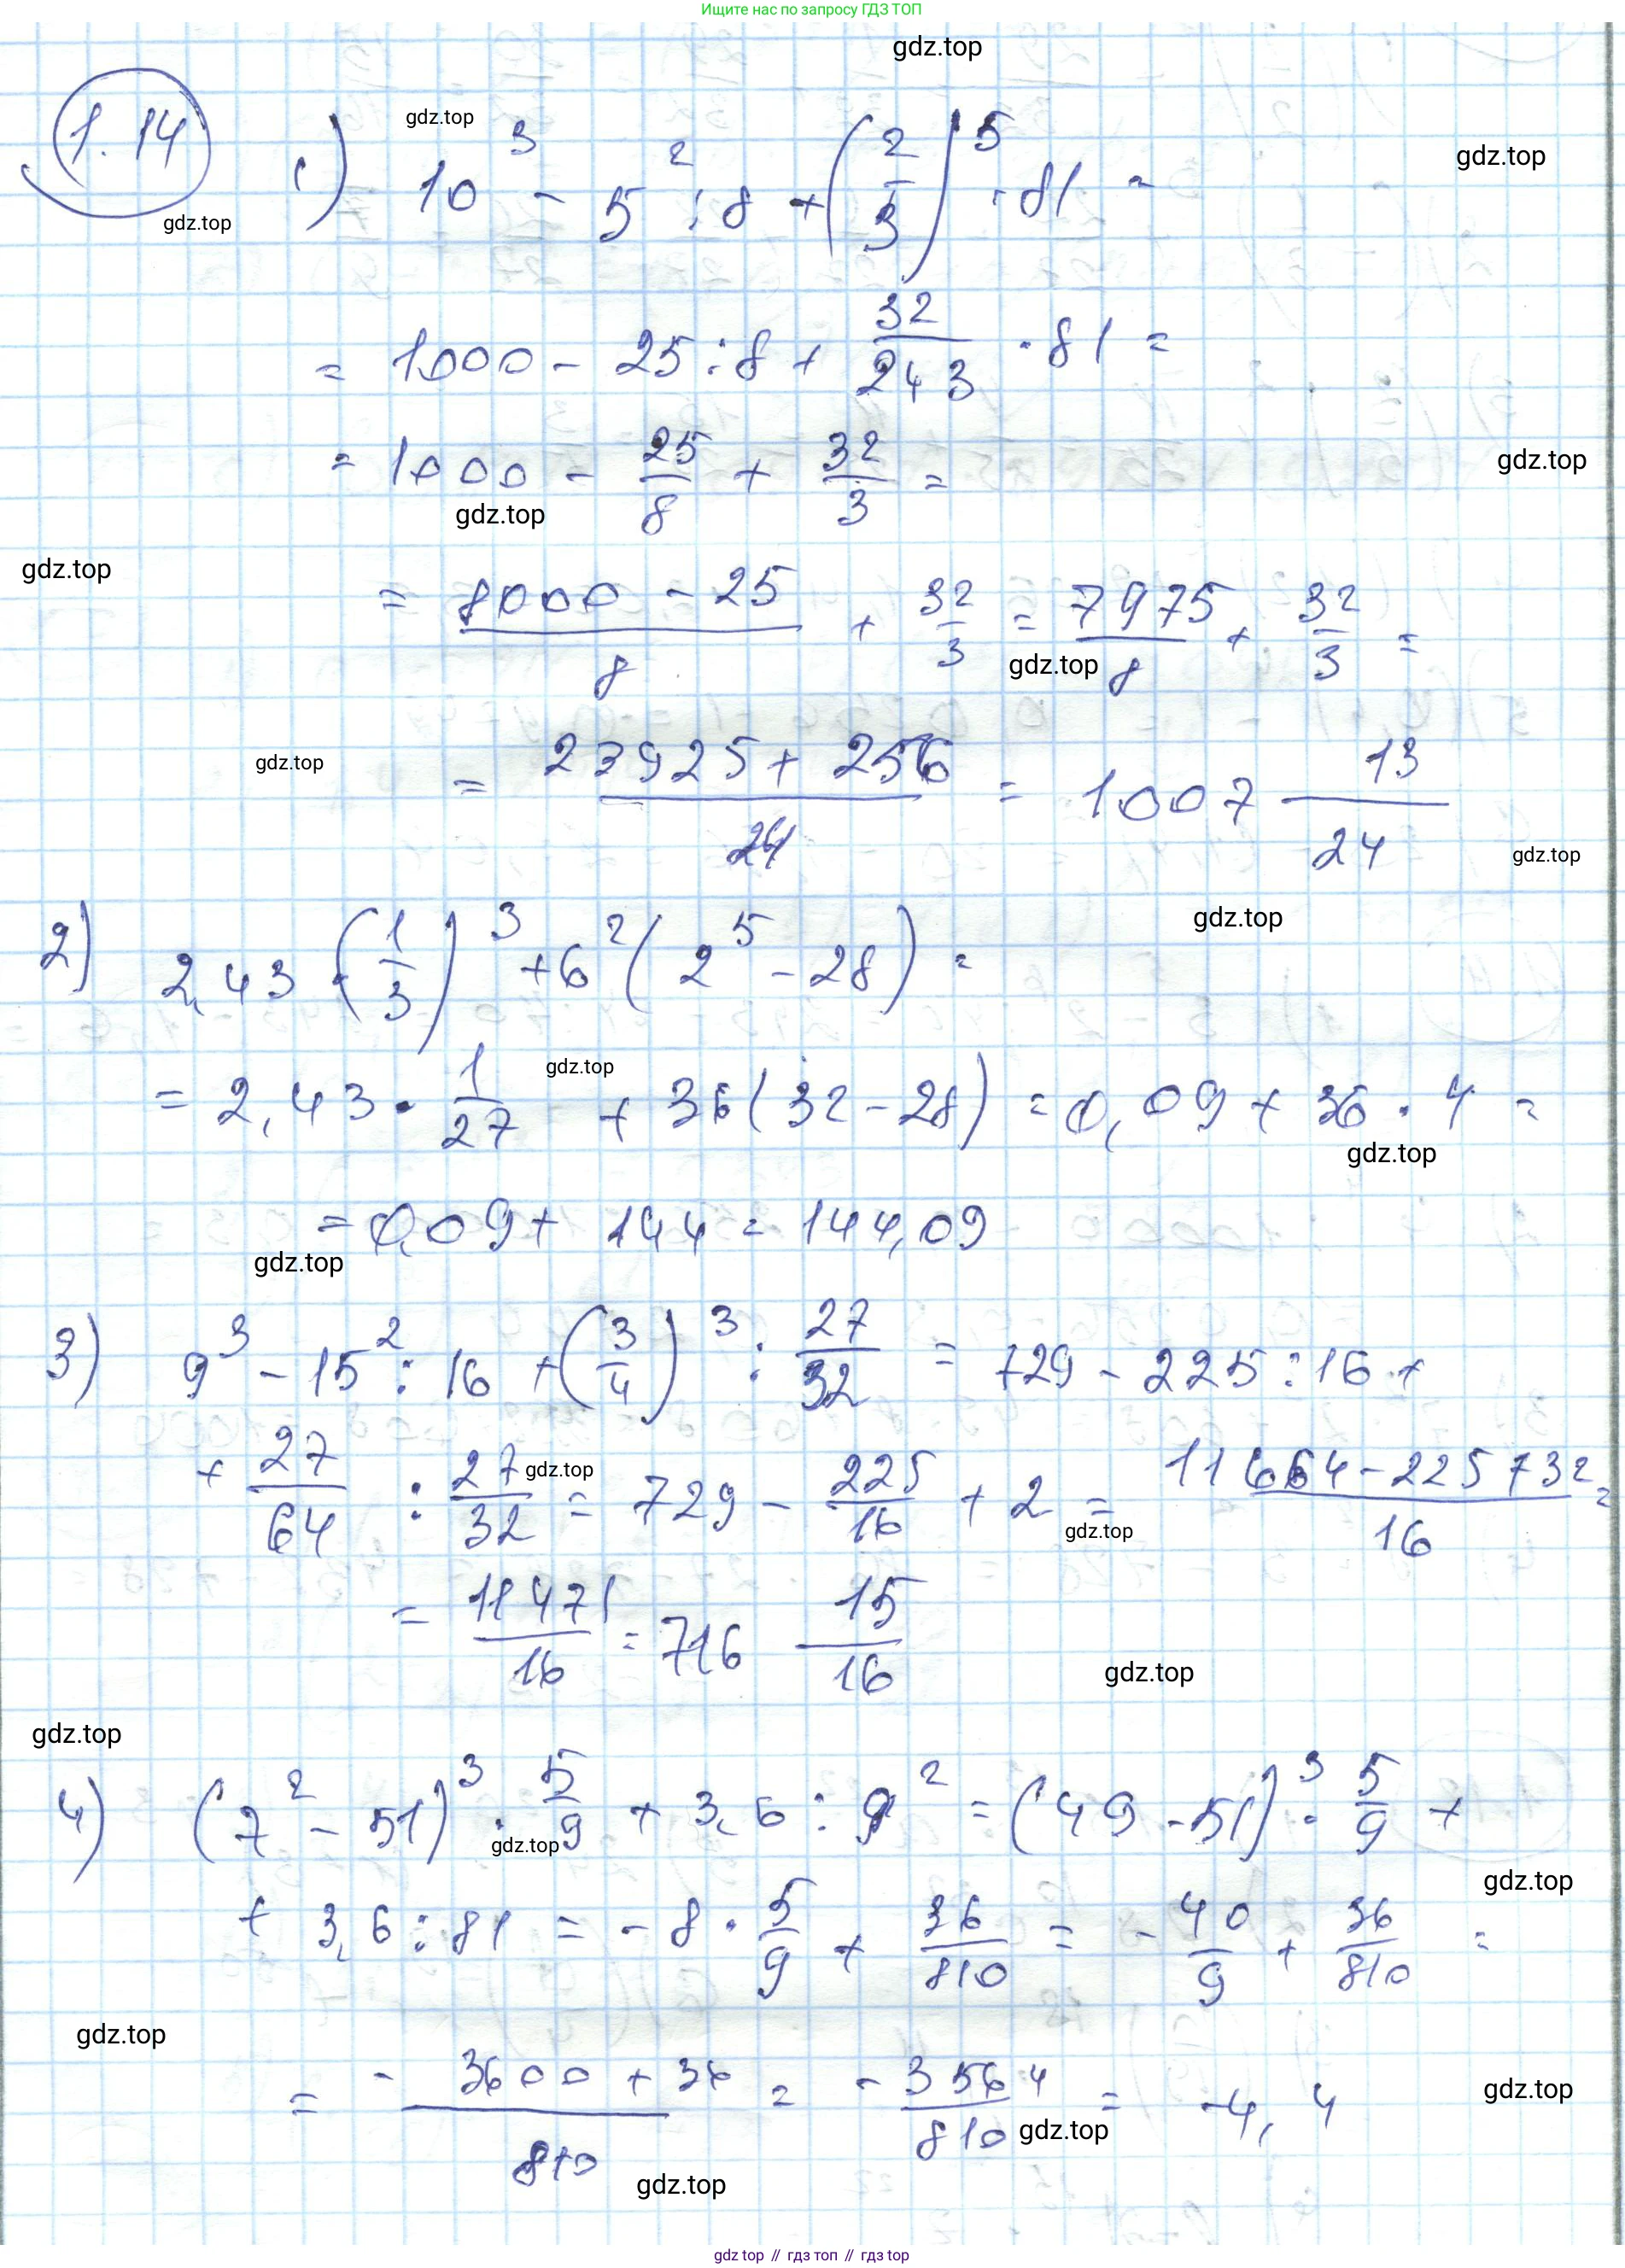 Ищите нас по запросу ГДЗ ТОП
gdz.top
1.14 1) 10³ - 5² : 8 + (2/3)⁵ · 81 =
gdz.top
gdz.top
gdz.top
= 1000 - 25 : 8 + 32/243 · 81 =
= 1000 - 25/8 + 32/3 =
gdz.top
gdz.top
gdz.top
= (8000 - 25)/8 + 32/3 = 7975/8 + 32/3 =
gdz.top
gdz.top
= (23925 + 256)/24 = 1007 13/24
gdz.top
gdz.top
2) 2,43 · (1/3)³ + 6² (2⁵ - 28) =
gdz.top
= 2,43 · 1/27 + 36 (32 - 28) = 0,09 + 36 · 4 =
gdz.top
= 0,09 + 144 = 144,09
gdz.top
3) 9³ - 15² : 16 + (3/4)³ : 27/32 = 729 - 225 : 16 +
+ 27/64 : 27/32 = 729 - 225/16 + 2 = (11664 - 225 + 32)/16 =
gdz.top
gdz.top
= 11471/16 = 716 15/16
gdz.top
gdz.top
4) (7² - 51)³ · 5/9 + 3,6 : 9² = (49 - 51)³ · 5/9 +
gdz.top
gdz.top
+ 3,6 : 81 = -8 · 5/9 + 36/810 = - 40/9 + 36/810 =
gdz.top
= (-3600 + 36)/810 = - 3564/810 = -4,4
gdz.top
gdz.top
gdz.top
gdz top // гдз топ // гдз top